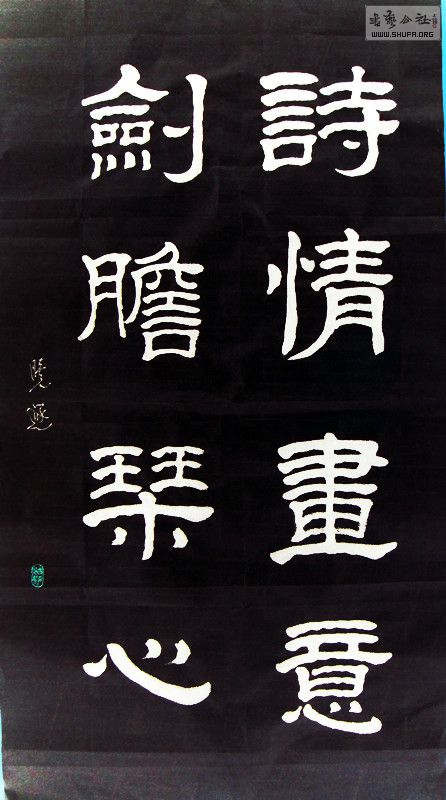 詩情畫意
劍膽琹心
書藝公社
WWW.SHUFA.ORG